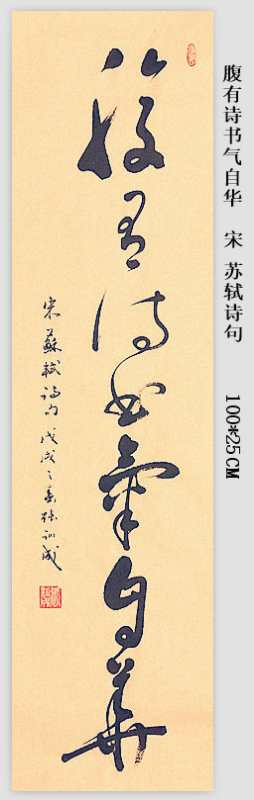 腹有诗书气自华 宋 苏轼诗句 100*25CM
腹有诗书氣自華
宋蘇軾诗句戊戌之春張训成